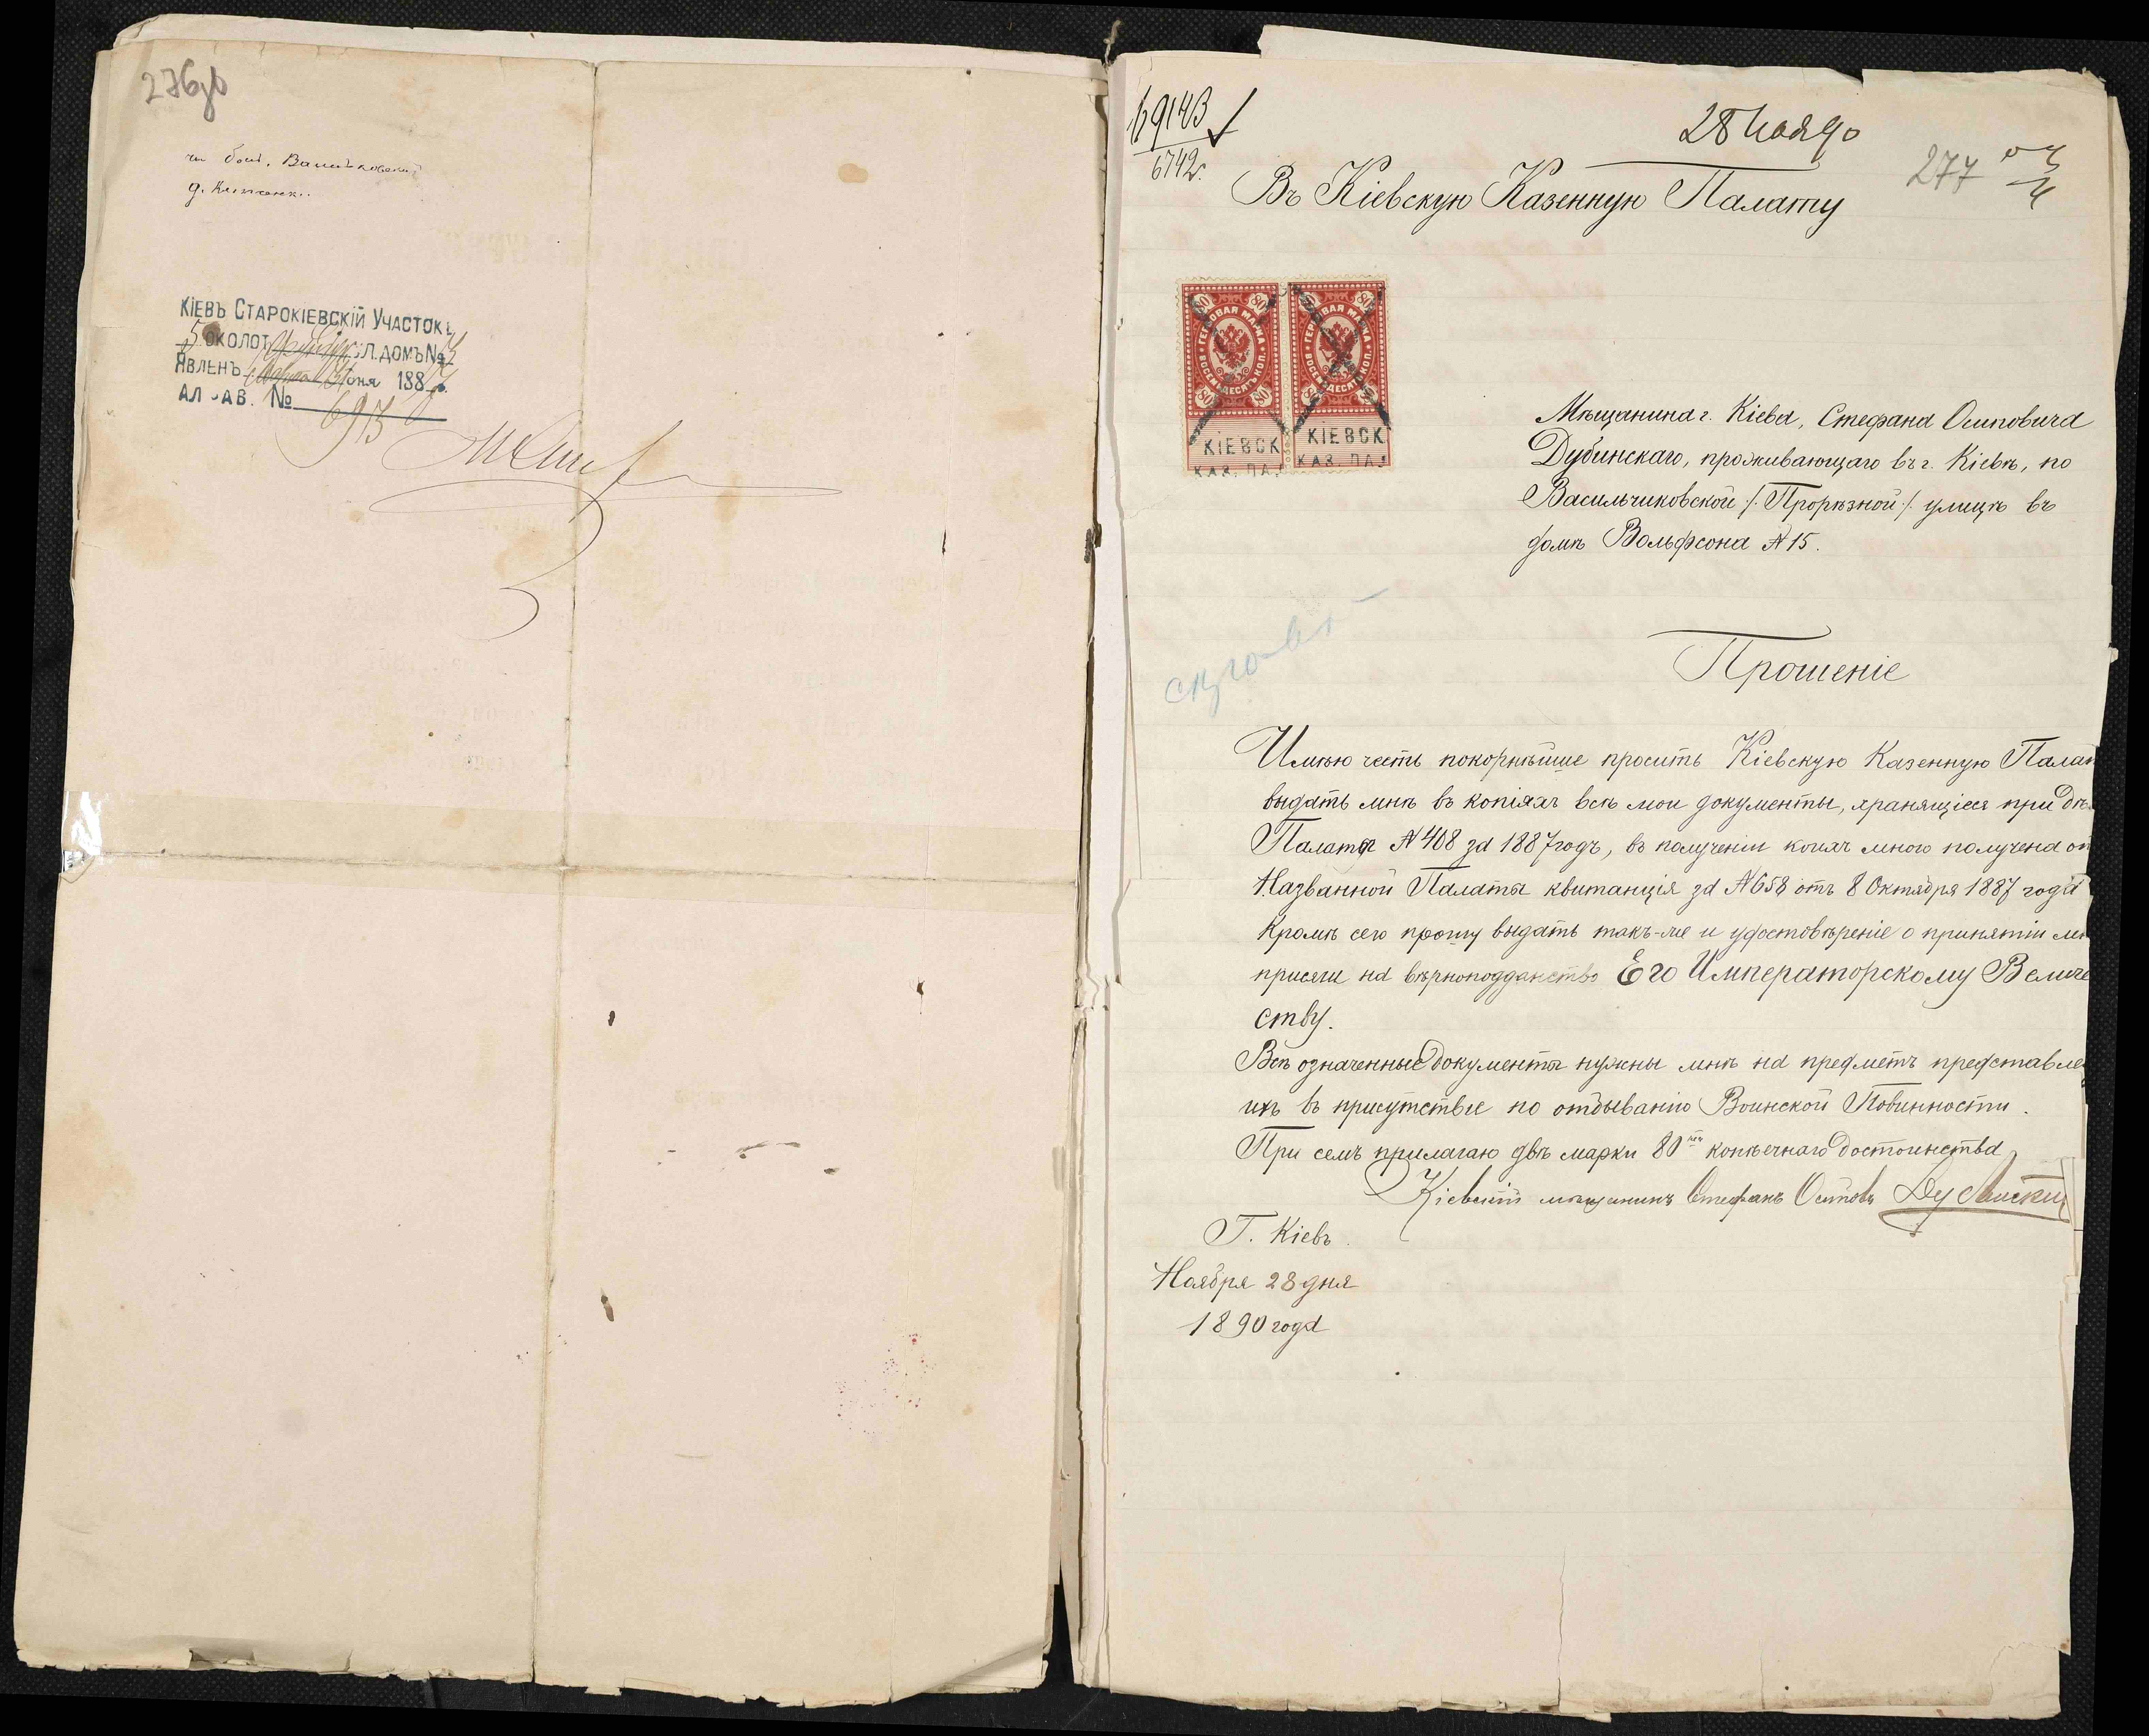 276
Кіевъ Старокіевскій Участокъ
5 околот. ул. домъ №
Явленъ 188
Алфав. № 6973
69143
6742
28 Ноя 90
277
Въ Кіевскую Казенную Палату
80 80 80 80
ГЕРБОВАЯ МАРКА ВОСЕМЬДЕСЯТЪ КОП. ГЕРБОВАЯ МАРКА ВОСЕМЬДЕСЯТЪ КОП.
80 80 80 80
КІЕВСК КІЕВСК
КАЗ. ПАЛ КАЗ. ПАЛ
Мѣщанина г. Кіева, Стефана Осиповича
Дубинскаго, проживающаго въ г. Кіевѣ, по
Васильчиковской /. Прорѣзной /. улицѣ въ
домѣ Вольфсона № 15.
Прошеніе
Имѣю честь покорнѣйше просить Кіевскую Казенную Палат
выдать мнѣ въ копіяхъ всѣ мои документы, хранящіеся при дѣ
Палаты № 408 за 1887 годъ, въ полученіи коихъ мною получена от
Названной Палаты квитанція за № 658 отъ 8 Октября 1887 года
Кромѣ сего прошу выдать такъ-же и удостовѣреніе о принятіи мн
присяги на вѣрноподданство Его Императорскому Величе
ству.
Всѣ означенные документы нужны мнѣ на предметъ представле
ихъ въ присутствіе по отбыванію Воинской Повинности.
При семъ прилагаю двѣ марки 80ти копѣечнаго достоинства
Кіевскій мѣщанинъ Стефанъ Осиповъ Дубинскій
Г. Кіевъ.
Ноября 28 дня
1890 года